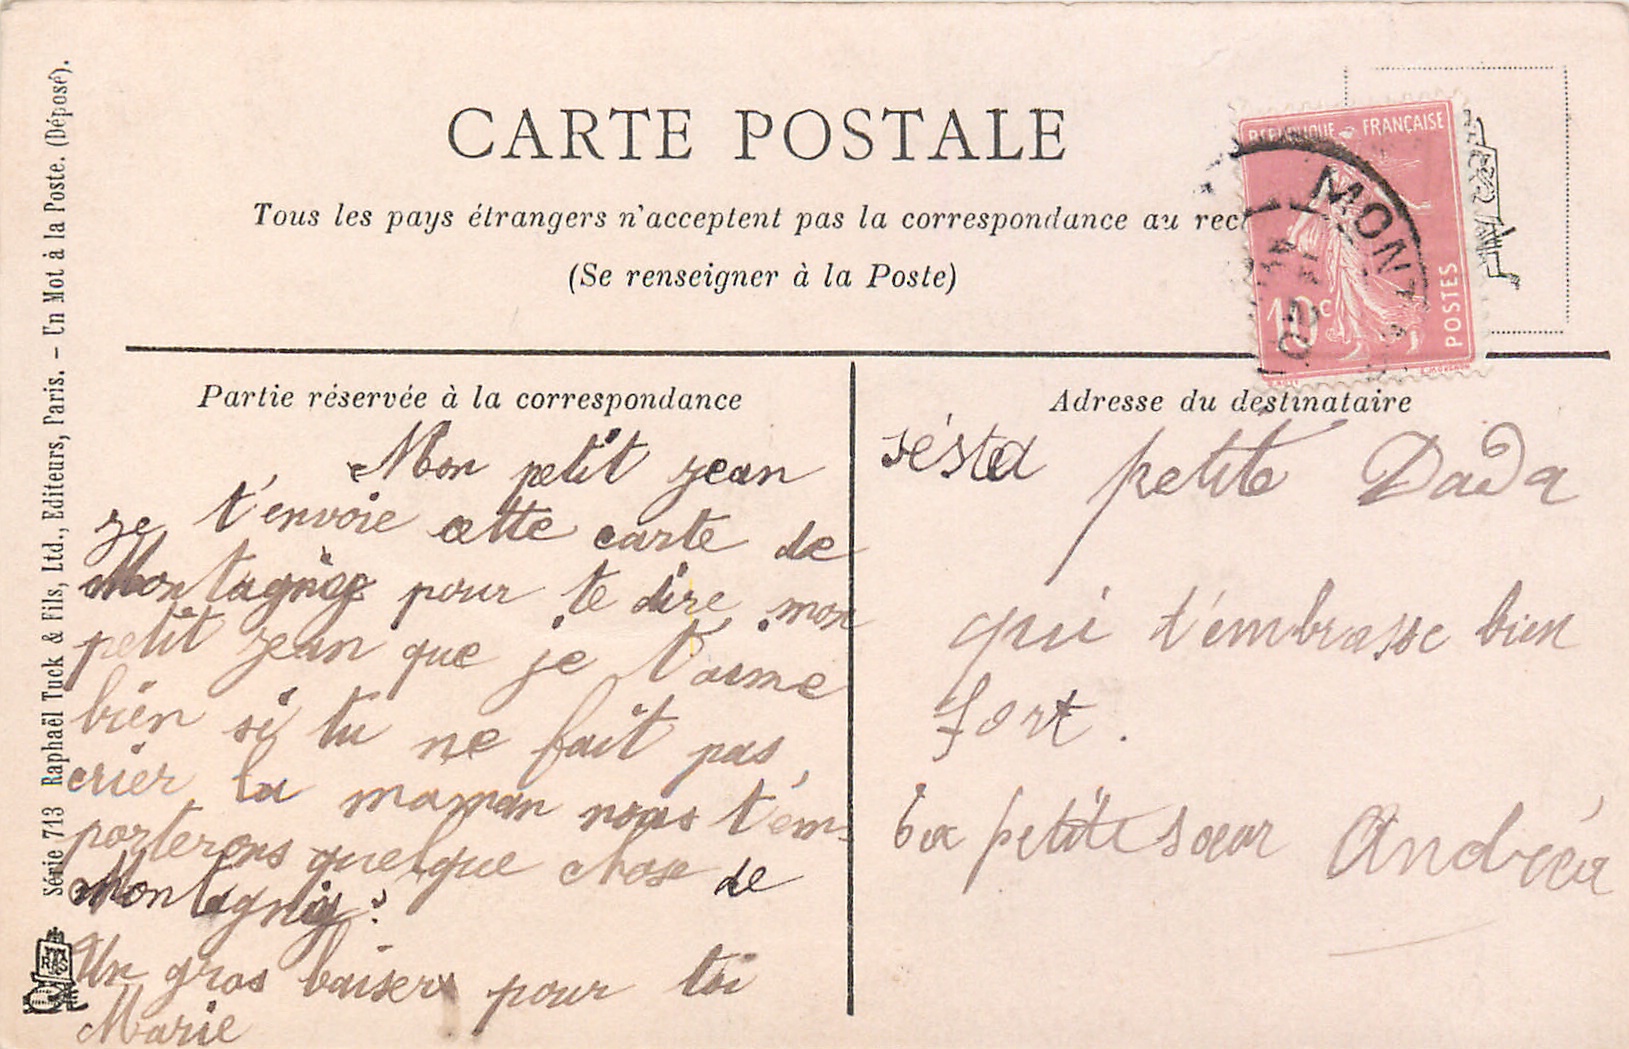 CARTE POSTALE
Tous les pays étrangers n'acceptent pas la correspondance au rec
(Se renseigner à la Poste)
REPUBLIQUE FRANÇAISE
10c
POSTES
MONT
Partie réservée à la correspondance
Mon petit jean
je t'envoie cette carte de
Montagnac pour te dire mon
petit jean que je t'aime
bien si tu ne fait pas
crier la maman nous t'em-
porterons quelque chose de
Un gros baisers pour toi
Marie
Adresse du destinataire
petite Dada
qui t'embrasse bien
fort.
ta petite sœur Andréa
Série 713 Raphaël Tuck & Fils, Ltd., Editeurs, Paris. - Un Mot à la Poste. (Déposé).